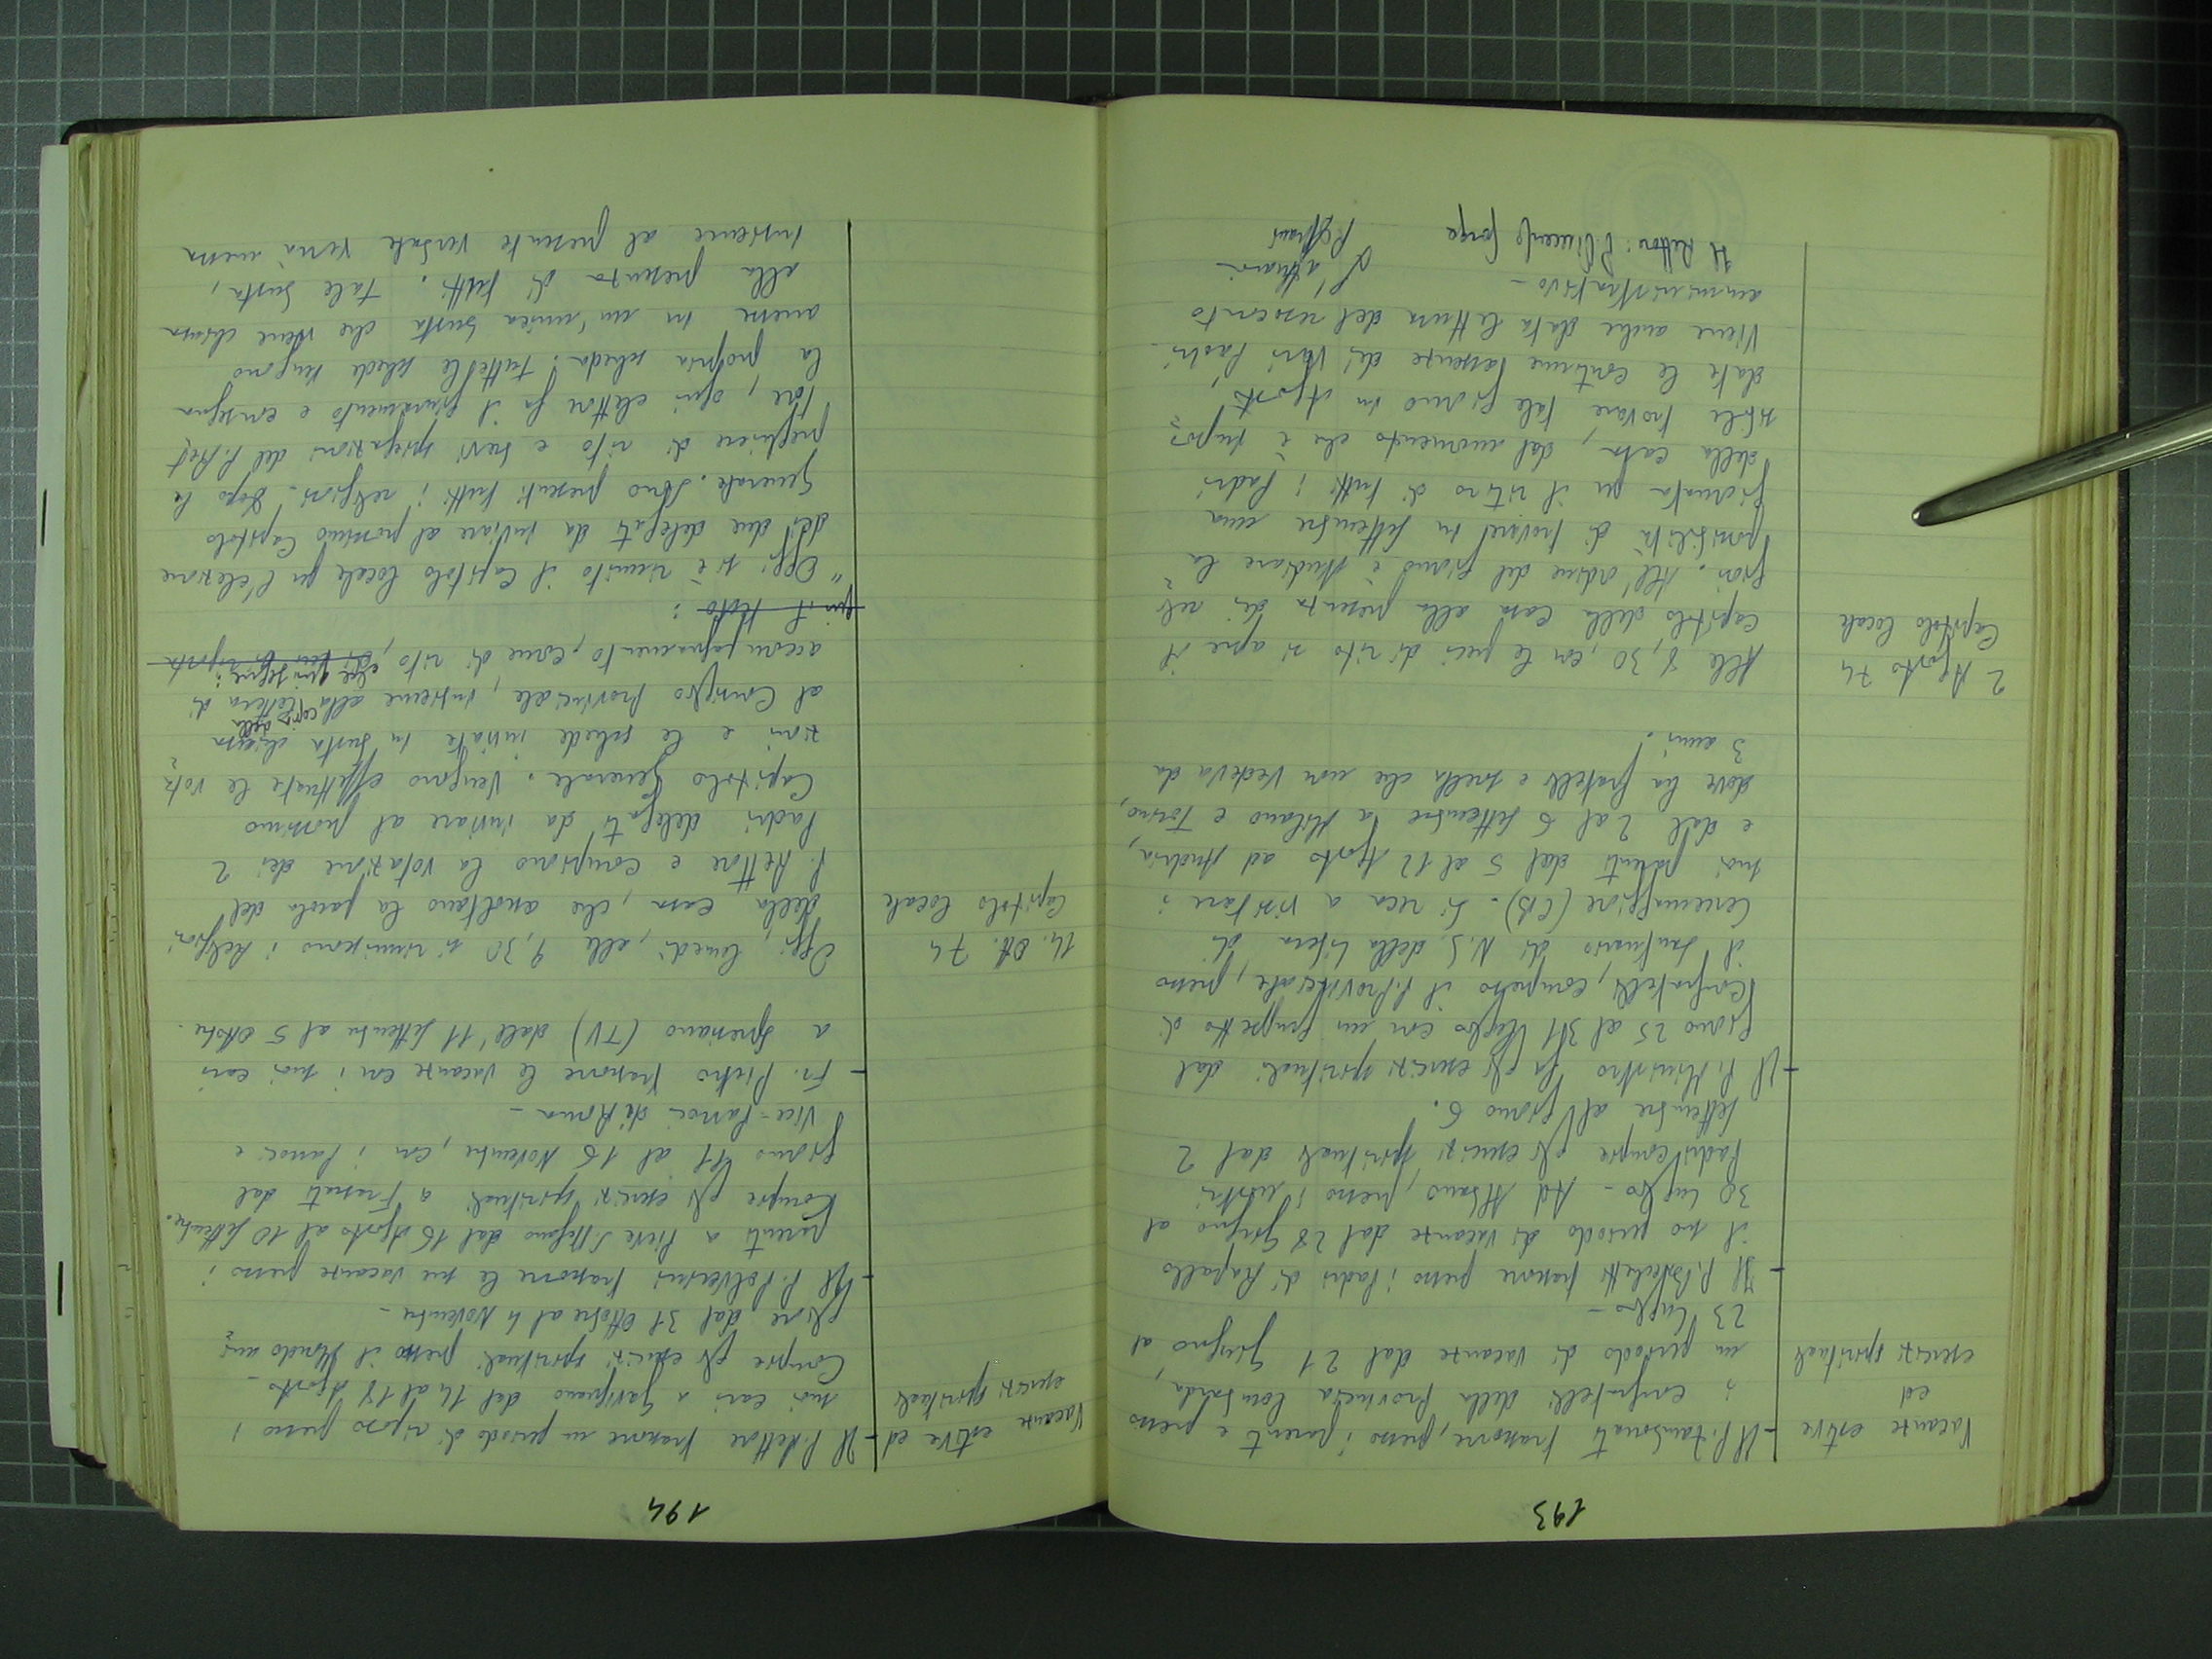 193
Vacanze estive
ed
esercizi spirituali
- Il P. Zambonati trascorre, presso i parenti e presso
i confratelli della Provincia Lombarda,
un periodo di vacanze dal 21 Giugno al
23 Luglio -
- Il P. trascorre presso i Padri di Rapallo
il suo periodo di vacanze dal 28 Giugno al
30 Luglio - Ad Albano, presso i nostri
Padri compie gli esercizi spirituali dal 2
settembre al giorno 6.
- Il P. Ministro fa gli esercizi spirituali dal
giorno 25 al 31 Luglio con un gruppetto di
Confratelli, compreso il P. Provinciale, presso
il Santuario di N.S. della Libera di
Cercemaggiore (CB). Si reca a visitare i
suoi parenti dal 5 al 12 Agosto ad Andria,
e dal 2 al 6 settembre a Milano e Torino,
dove ha fratelli e sorelle che non vedeva da
3 anni.
2 Agosto 74
Capitolo locale
Alle 9,30, con le preci di rito si apre il
Capitolo della Casa alla presenza dei reli=
giosi. All'ordine del giorno è studiare la
possibilità di trovare in settembre una
giornata per il ritiro di tutti i Padri
della casa, dal momento che è impos=
sibile trovare tale giorno in Agosto,
date le continue assenze di vari Padri.
Viene anche data lettura del resoconto
amministrativo -
Il Rettore: P. Vincenzo Gorga
L'attuario
194
Vacanze estive ed
esercizi spirituali
- Il P. Rettore trascorre un periodo di riposo presso i
suoi cari a Gavignano dal 14 al 18 Agosto -
Compie gli esercizi spirituali presso il Mondo mi=
gliore dal 31 Ottobre al 4 Novembre -
- Il P. Polverini trascorre le sue vacanze presso i
parenti a Pieve S. Stefano dal 16 Agosto al 10 settembre.
Compie gli esercizi spirituali a Frascati dal
giorno 11 al 16 Novembre, con i Parroci e
Vice-Parroci di Roma -
- Fr. Pietro trascorre le vacanze con i suoi cari
a Spresiano (TV) dall'11 settembre al 5 Ottobre.
14. Ott. 74
Capitolo locale
Oggi, lunedì, alle 9,30 si riuniscono i Religiosi
della casa, che ascoltano la parola del
P. Rettore e compiono la votazione dei 2
Padri delegati da inviare al prossimo
Capitolo Generale. Vengono effettuate le vota=
zioni e le schede inviate in busta chiusa
al Consiglio Provinciale, insieme alla copia della lettera di
accompagnamento, come di rito, che qui segue:
qui il testo:
"Oggi si è riunito il Capitolo locale per l'elezione
dei due delegati da inviare al prossimo Capitolo
Generale. Sono presenti tutti i religiosi. Dopo le
preghiere di rito e brevi spiegazioni del P. Ret=
tore, ogni elettore fa il giuramento e consegna
la propria scheda: tutte le schede vengono
messe in un'unica busta che viene chiusa
alla presenza di tutti. Tale busta,
insieme al presente verbale verrà messa